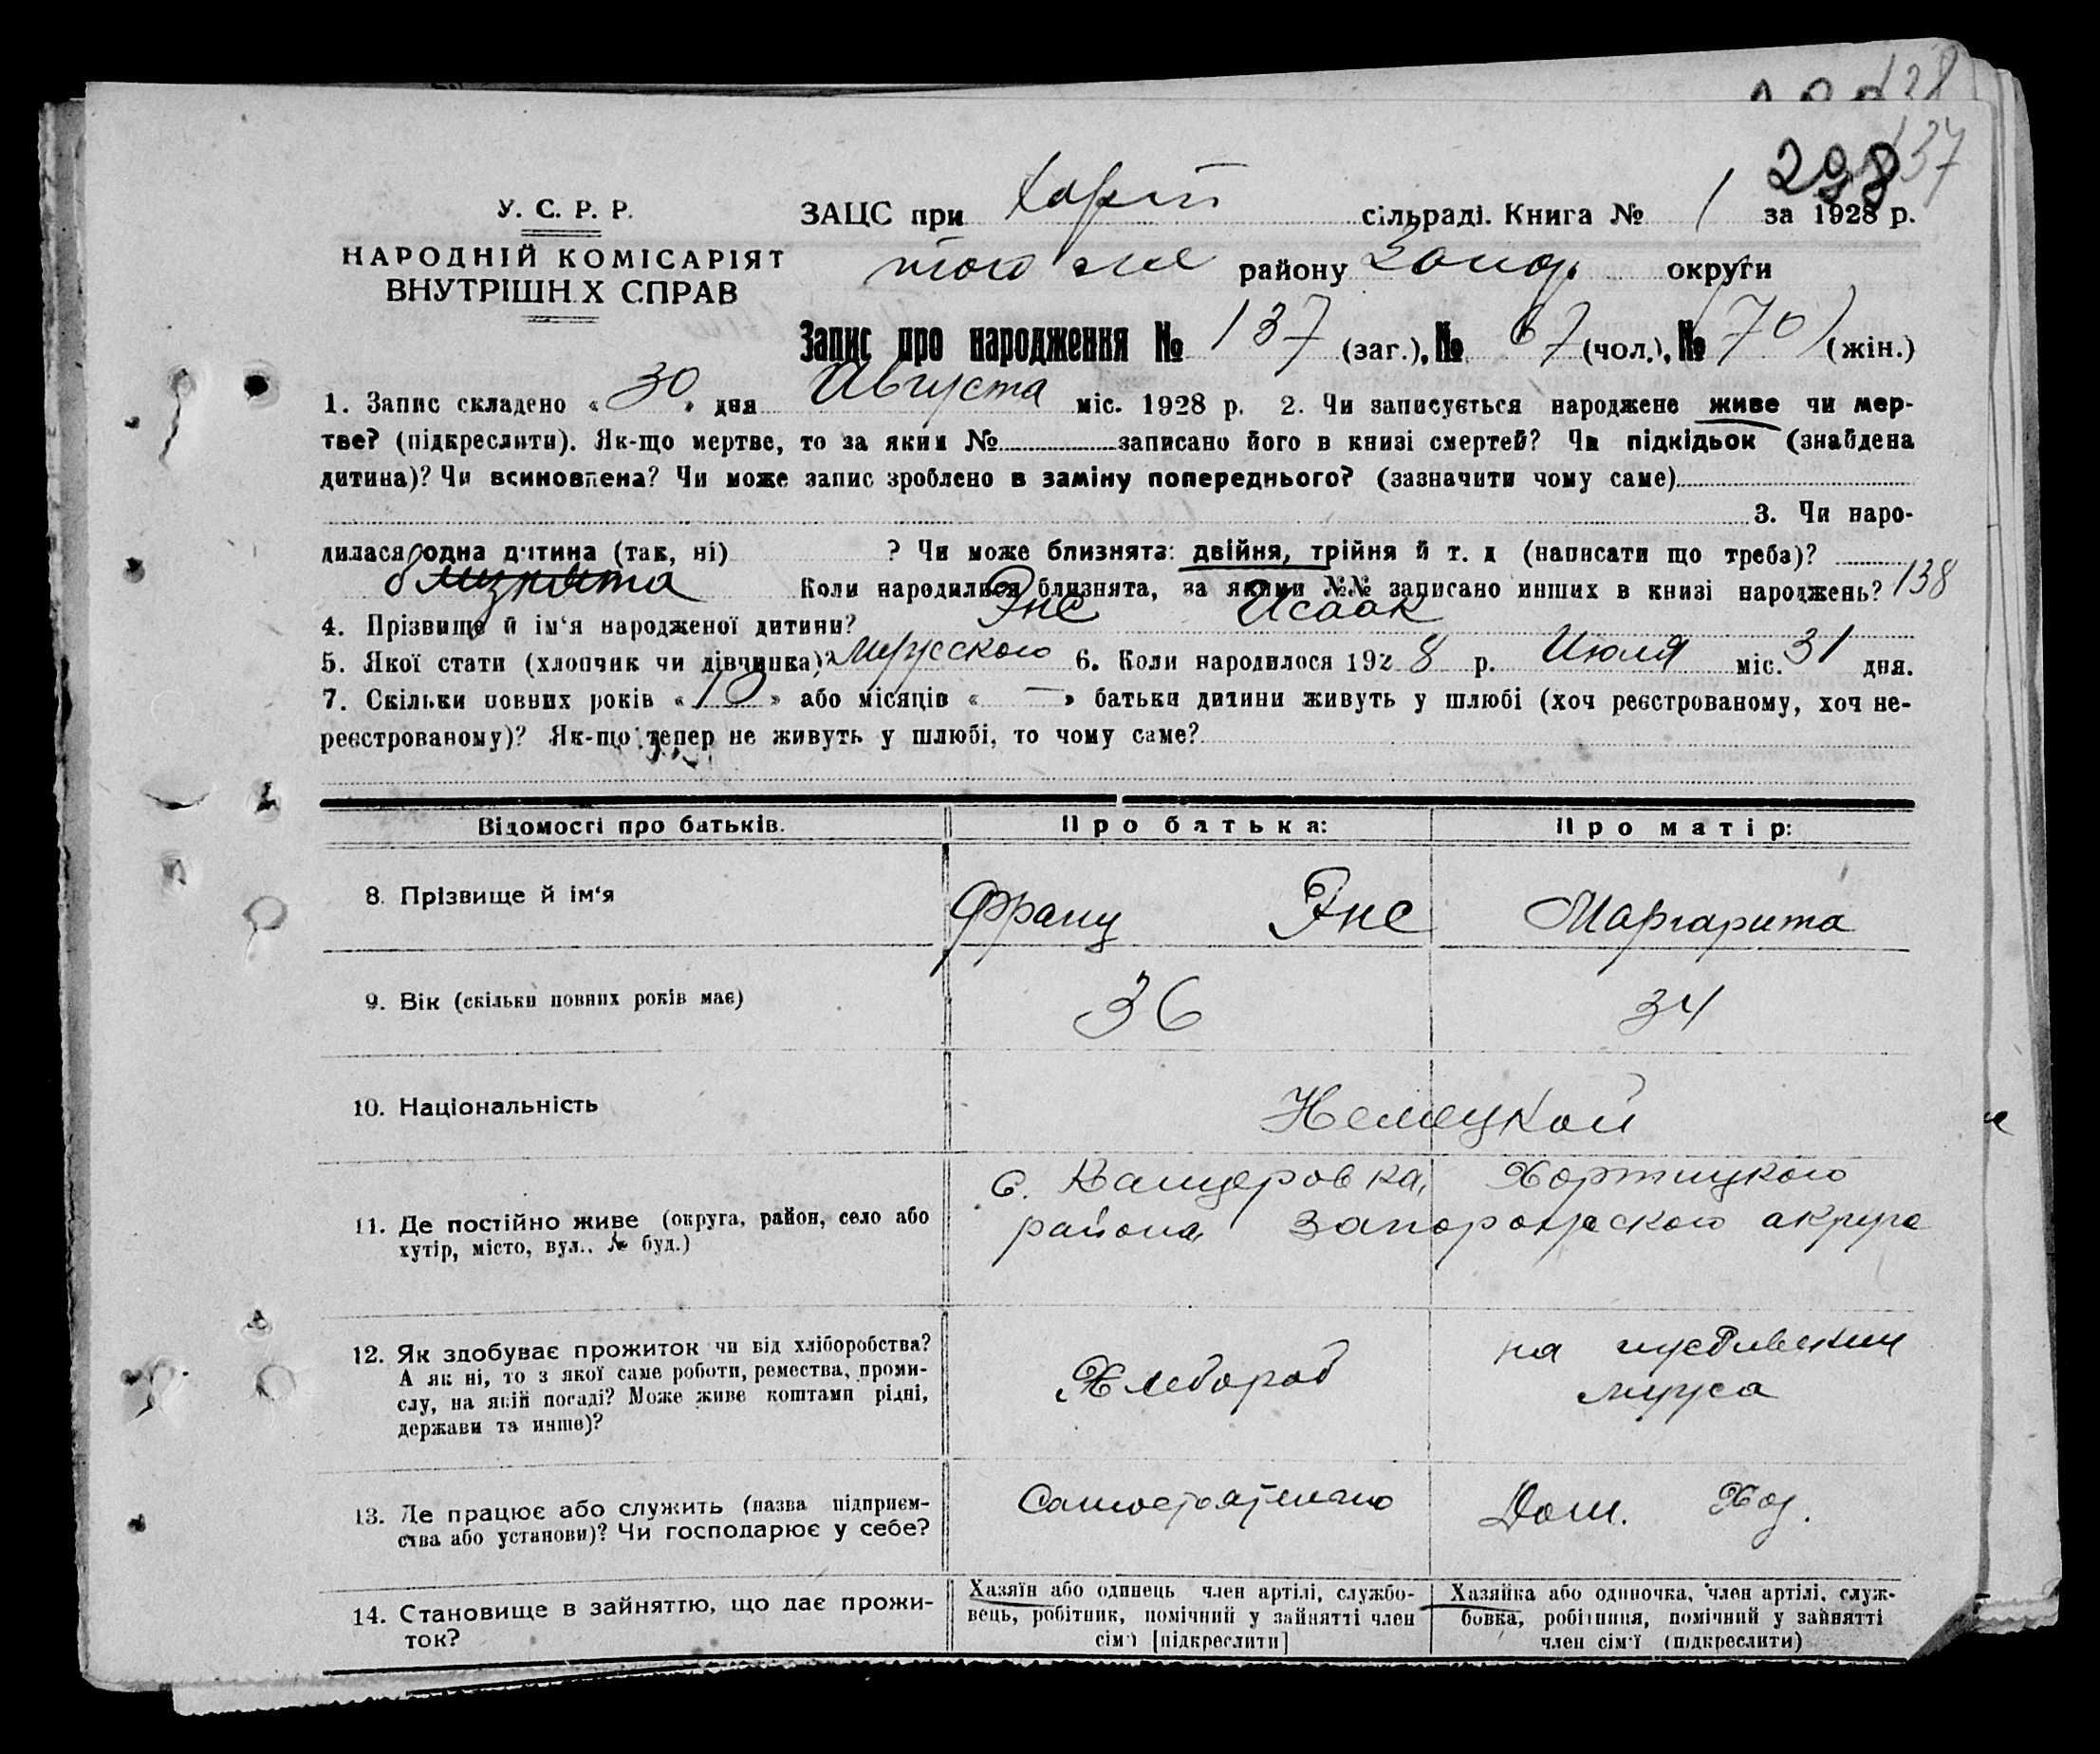 138
298 137
У. С. Р. Р.
НАРОДНІЙ КОМІСАРІЯТ
ВНУТРІШН Х СПРАВ
ЗАЦС при Хорт сільраді. Книга № 1 за 1928 р.
того же району Запор. округи
Запис про народження № 137 (заг.), № 67 (чол.), № 70 (жін.)
1. Запис складено « 30 » дня Августа міс. 1928 р. 2. Чи записується народжене живе чи мер-
тве? (підкреслити). Як-що мертве, то за яким № записано його в книзі смертей? Чи підкідьок (знайдена
дитина)? Чи всиновлена? Чи може запис зроблено в заміну попереднього? (зазначити чому саме)
3. Чи наро-
дилася одна дитина (так, ні) ? Чи може близнята: двійня, трійня й т. д (написати що треба)?
близнята Коли народилися близнята, за якими №№ записано инших в книзі народжень? 138
4. Прізвище й ім'я народженої дитини? Энс Исаак
5. Якої стати (хлопчик чи дівчинка)? Мужского 6. Коли народилося 192 8 р. Июля міс. 31 дня.
7. Скільки повних років « 10 » або місяців « — » батьки дитини живуть у шлюбі (хоч реєстрованому, хоч не-
реєстрованому)? Як-що тепер не живуть у шлюбі, то чому саме?
Відомості про батьків. Про батька: Про матір:
8. Прізвище й ім'я Франц Энс Маргарита
9. Вік (скільки повних років має) 36 34
10. Національність Немецкой
11. Де постійно живе (округа, район, село або
хутір, місто, вул.. № буд.)
с. Канцеровка, Хортицкого
района Запорожского акруга
12. Як здобуває прожиток чи від хліборобства?
А як ні, то з якої саме роботи, ремества, проми-
слу, на якій посаді? Може живе коштами рідні,
держави та инше)?
Хлебороб
на иждивении
мужа
13. Де працює або служить (назва підприєм-
ства або установи)? Чи господарює у себе?
Самостоятельно Дом. Хоз.
14. Становище в зайняттю, що дає прожи-
ток?
Хазяїн або одинець член артілі, службо-
вець, робітник, помічний у зайнятті член
сім'ї [підкреслити]
Хазяйка або одиночка, член артілі, служ-
бовка, робітниця, помічний у зайнятті
член сім'ї (підкреслити)